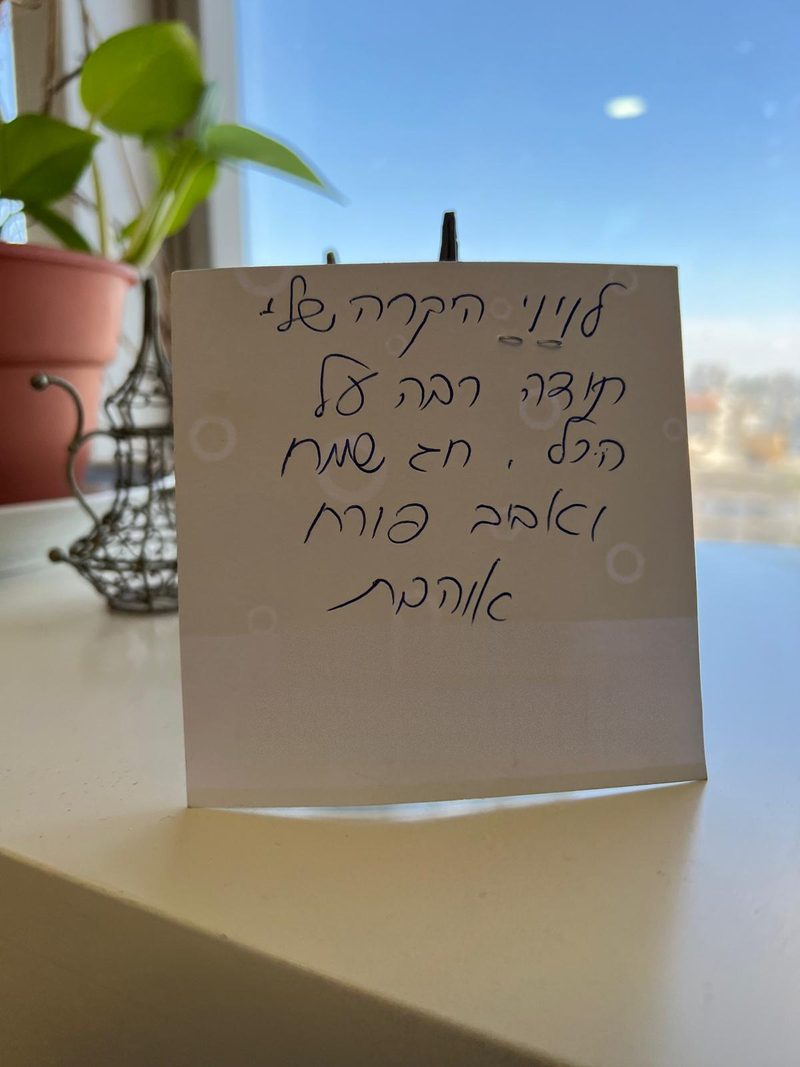 לויני היקרה שלי
תודה רבה על
הכל. חג שמח
ואביב פורח
אוהבת